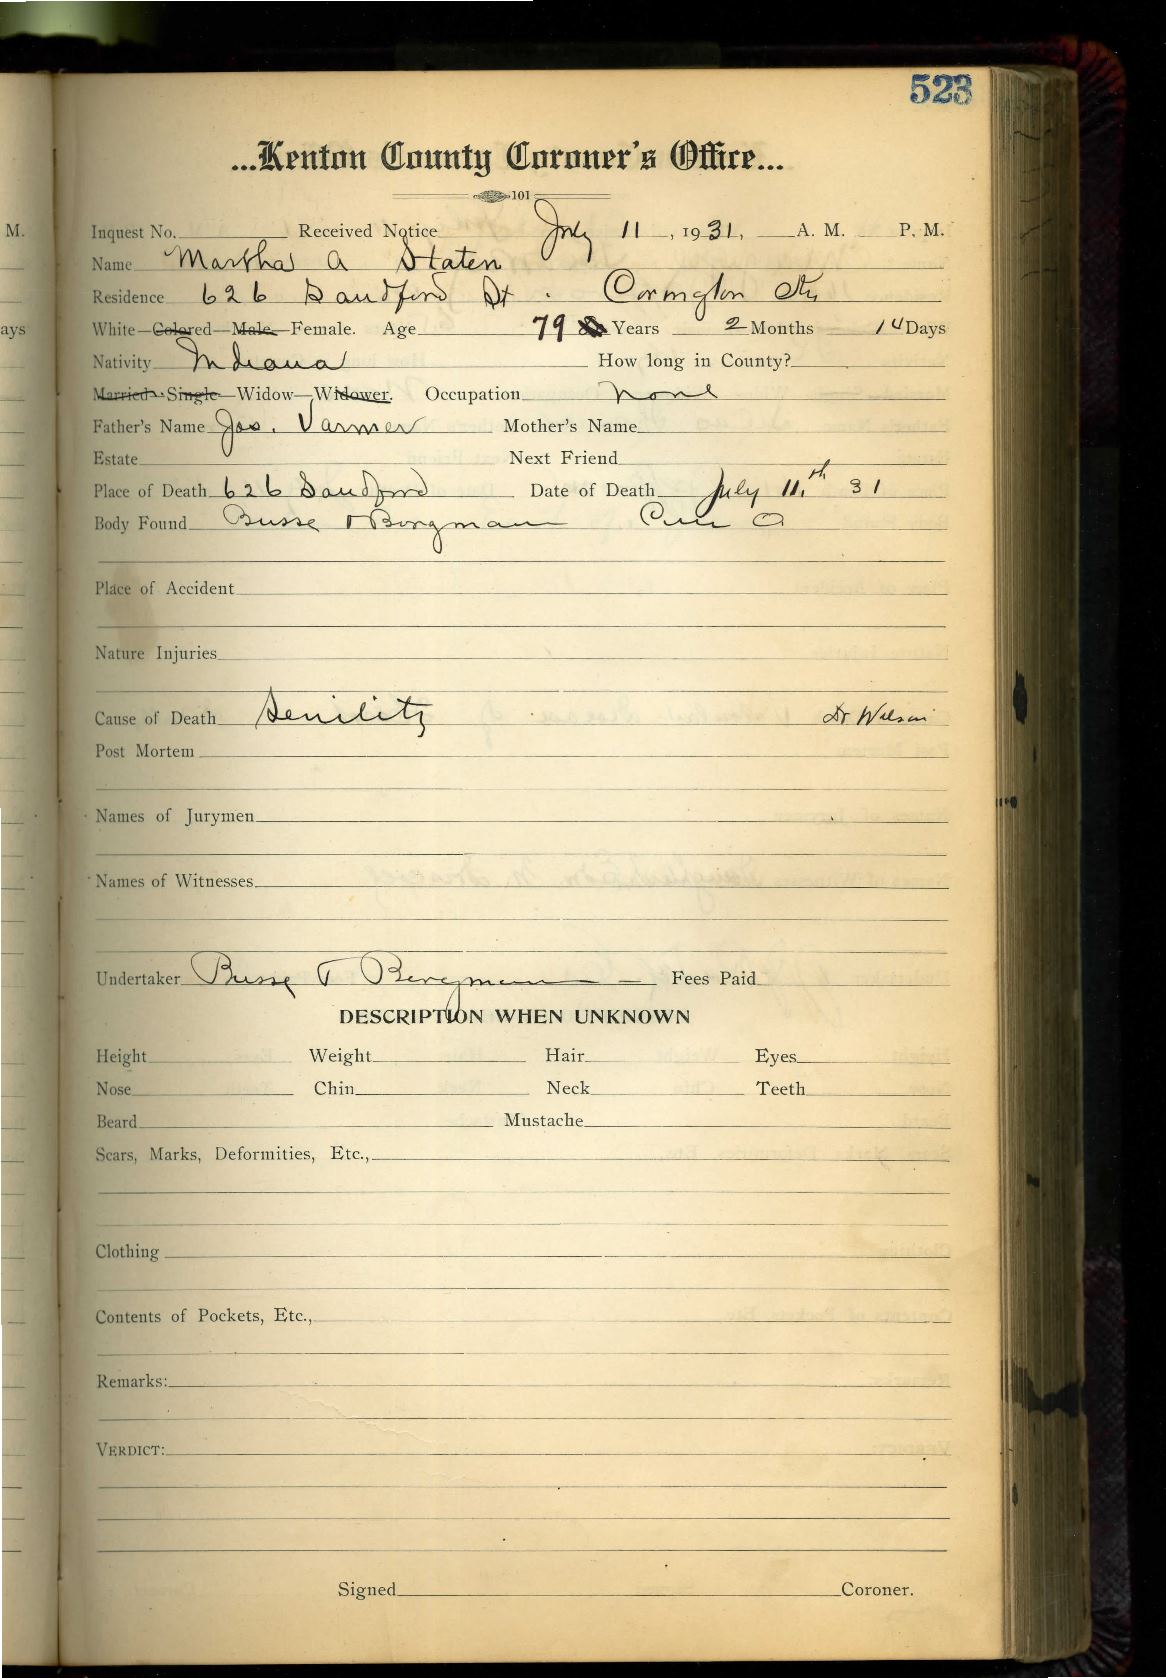 523
M.
ays
...Kenton County Coroner's Office...
101
Inquest No. Received Notice July 11, 1931, A. M. P. M.
Name Martha A Staten
Residence 626 Sandford St. Covington Ky
White—Colored—Male—Female. Age 79 Years 2 Months 14 Days
Nativity Indiana How long in County?
Married—Single—Widow—Widower. Occupation none
Father's Name Jos. Varmer Mother's Name
Estate Next Friend
Place of Death 626 Sandford Date of Death July 11th 31
Body Found Busse & Borgman Cin O
Place of Accident
Nature Injuries
Cause of Death Senility Dr Wilson
Post Mortem
Names of Jurymen
Names of Witnesses
Undertaker Busse & Borgman Fees Paid
DESCRIPTION WHEN UNKNOWN
Height Weight Hair Eyes
Nose Chin Neck Teeth
Beard Mustache
Scars, Marks, Deformities, Etc.,
Clothing
Contents of Pockets, Etc.,
Remarks:
VERDICT:
Signed Coroner.